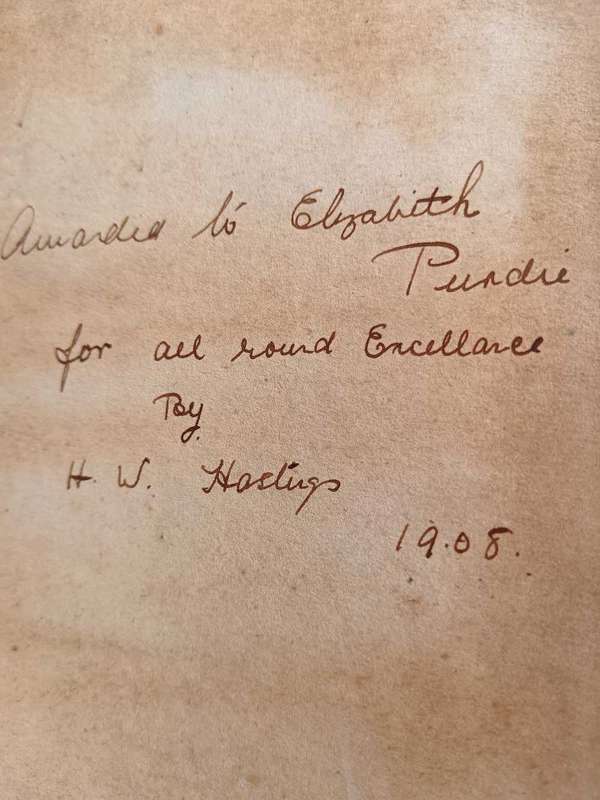 Awarded to Elizabitch
Purdie
for all round Excellance
By
H. W. Hastings
1908.